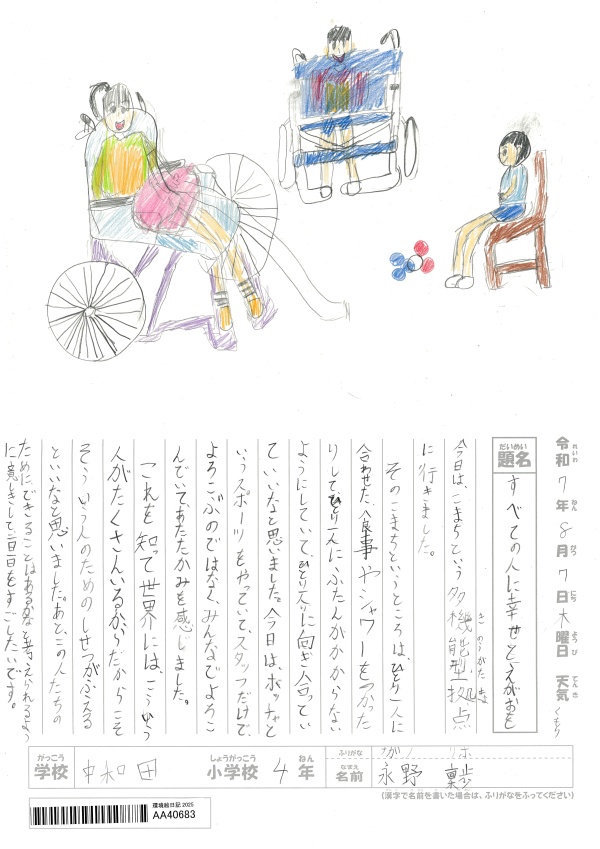 令和7年8月7日木曜日 天気くもり
れいわ ねん がつ にち ようび てんき
だいめい
題名 すべての人に幸せとえがおを
今日は、こまちという多機能型拠点
きのうがた きょ
に行きました。
そのこまちというところは、ひとり一人に
合わせた、食事やシャワーをつかった
りして、ひとり一人にふたんがかからない
ようにしていて、ひとり一人に向き合ってい
ていいなと思いました。今日は、ボッチャと
いうスポーツをやっていて、スタッフだけで
よろこぶのではなく、みんなでよろこ
んでいて、あたたかみを感じました。
これを知って世界には、こういう
人がたくさんいるからだからこそ
そういう人のためのしせつがふえる
といいなと思いました。あと、この人たちの
ためにできることはあるかなと考えられるよう
に意しきして毎日をすごしたいです。
がっこう
学校 中和田
しょうがっこう
小学校 4年
ねん
ふりがな
なまえ
名前 永野
(漢字で名前を書いた場合は、ふりがなをふってください)
環境絵日記2025
AA40683